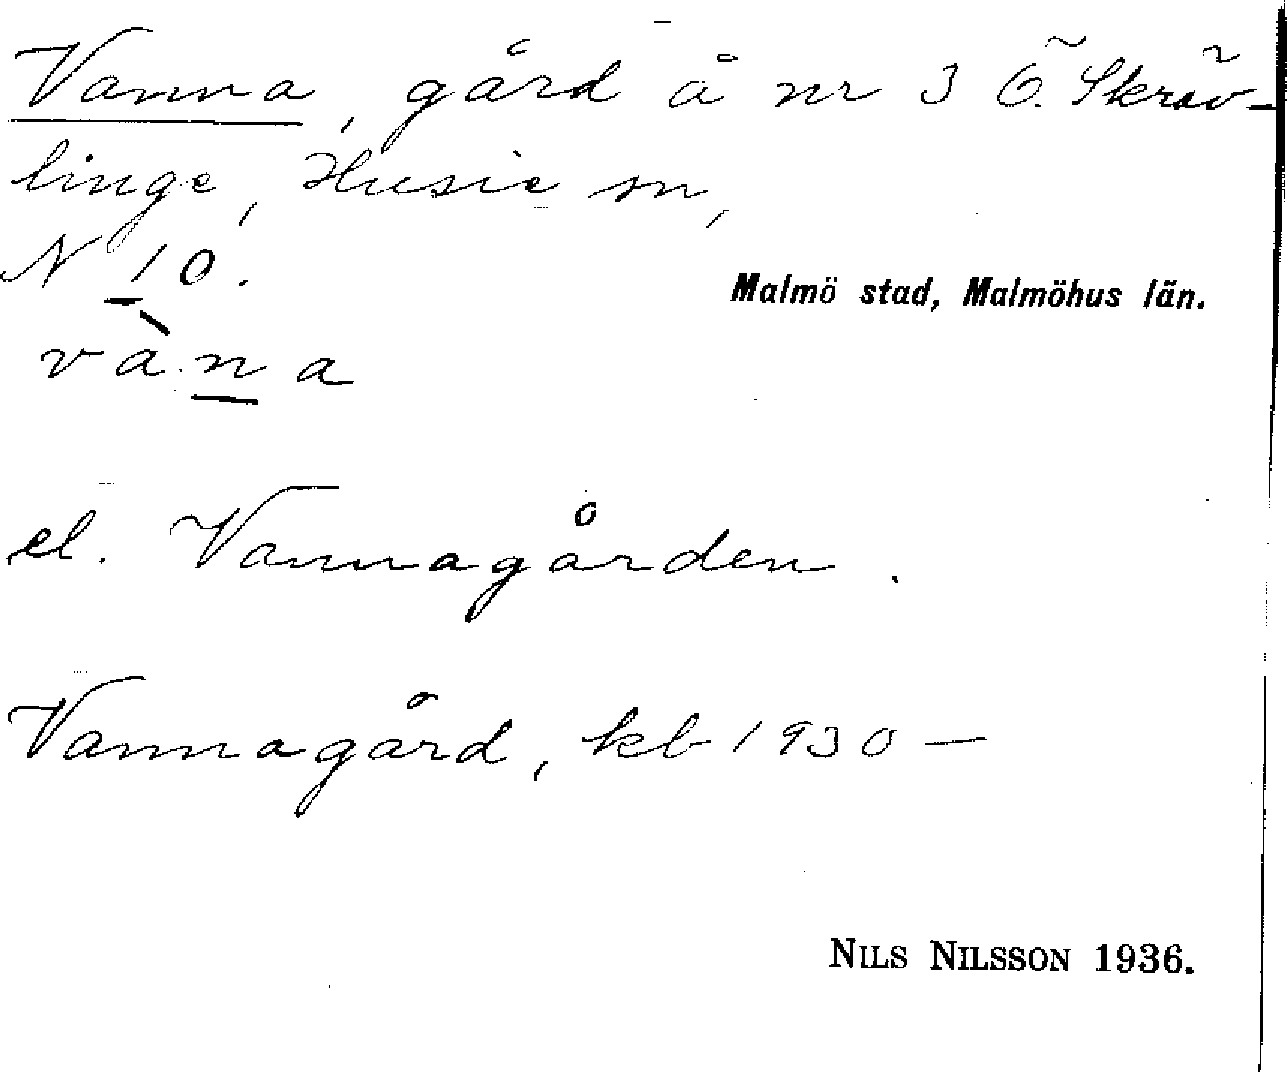 Vanna, gård å nr 3 Ö. Skräv-
linge, Husie sn,
N 10.
Malmö stad, Malmöhus län.
vàna
el. Vannagården.
Vannagård, kb 1930 —
NILS NILSSON 1936.